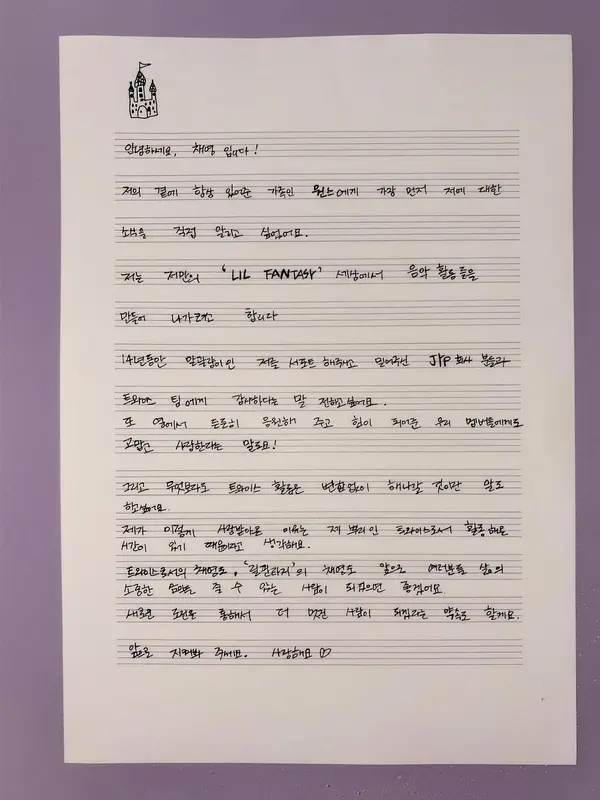 안녕하세요, 채영 입니다!
저의 곁에 항상 있어준 가족인 원스에게 가장 먼저 저에 대한
소식을 직접 알리고 싶었어요.
저는 저만의 'LIL FANTASY' 세상에서 음악 활동들을
만들어 나가려고 합니다
14년동안 말괄량이인 저를 서포트 해주시고 믿어주신 JYP 회사 분들과
트와이스 팀에게 감사하다는 말 전하고싶어요.
또 옆에서 든든히 응원해 주고 힘이 되어준 우리 멤버들에게도
고맙고 사랑한다는 말로요!
그리고 무엇보다도 트와이스 활동은 변함없이 해나갈 것이란 말도
하고싶어요.
제가 이렇게 사랑받아온 이유는 제 뿌리인 트와이스로서 활동해온
시간이 있기 때문이라고 생각해요.
트와이스로서의 채영도, '릴판타지'의 채영도 앞으로 여러분들 삶의
소중한 습관을 줄 수 있는 사람이 되었으면 좋겠어요
새로운 도전을 통해서 더 멋진 사람이 되겠다는 약속도 할게요.
앞으로 지켜봐 주세요. 사랑해요 ♡